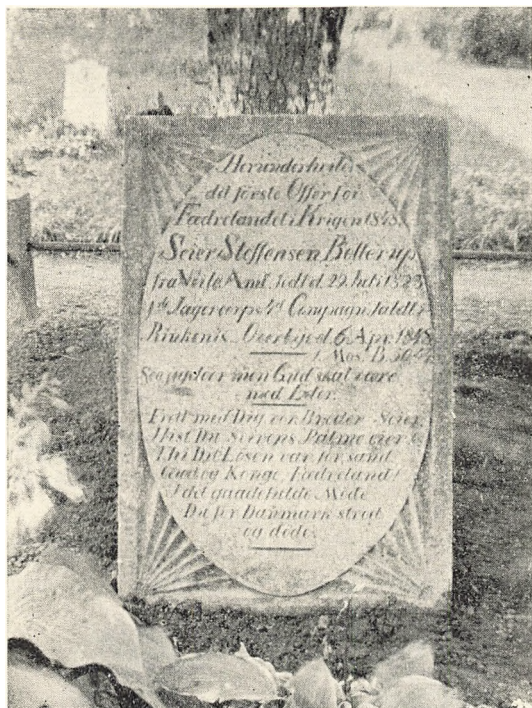 Herunder hviler
det første Offer for
Fædrelandet i Krigen 1848
Seier Steffensen Bolterup
fra Veile Amt, født d. 29 Juli 1823
Jægercorps Compagni faldt
Rinkenis d. 6 Apr. 1848
1. Mos. B.
men Gud skal være
med Eder.
Fred med Dig vor Broder Seier
Hist Du Seirens Palme eier
Thi Dit Løsen var for sand
Gud og Konge, Fædreland!
I det Møde
Du for Danmark stred
og døde.